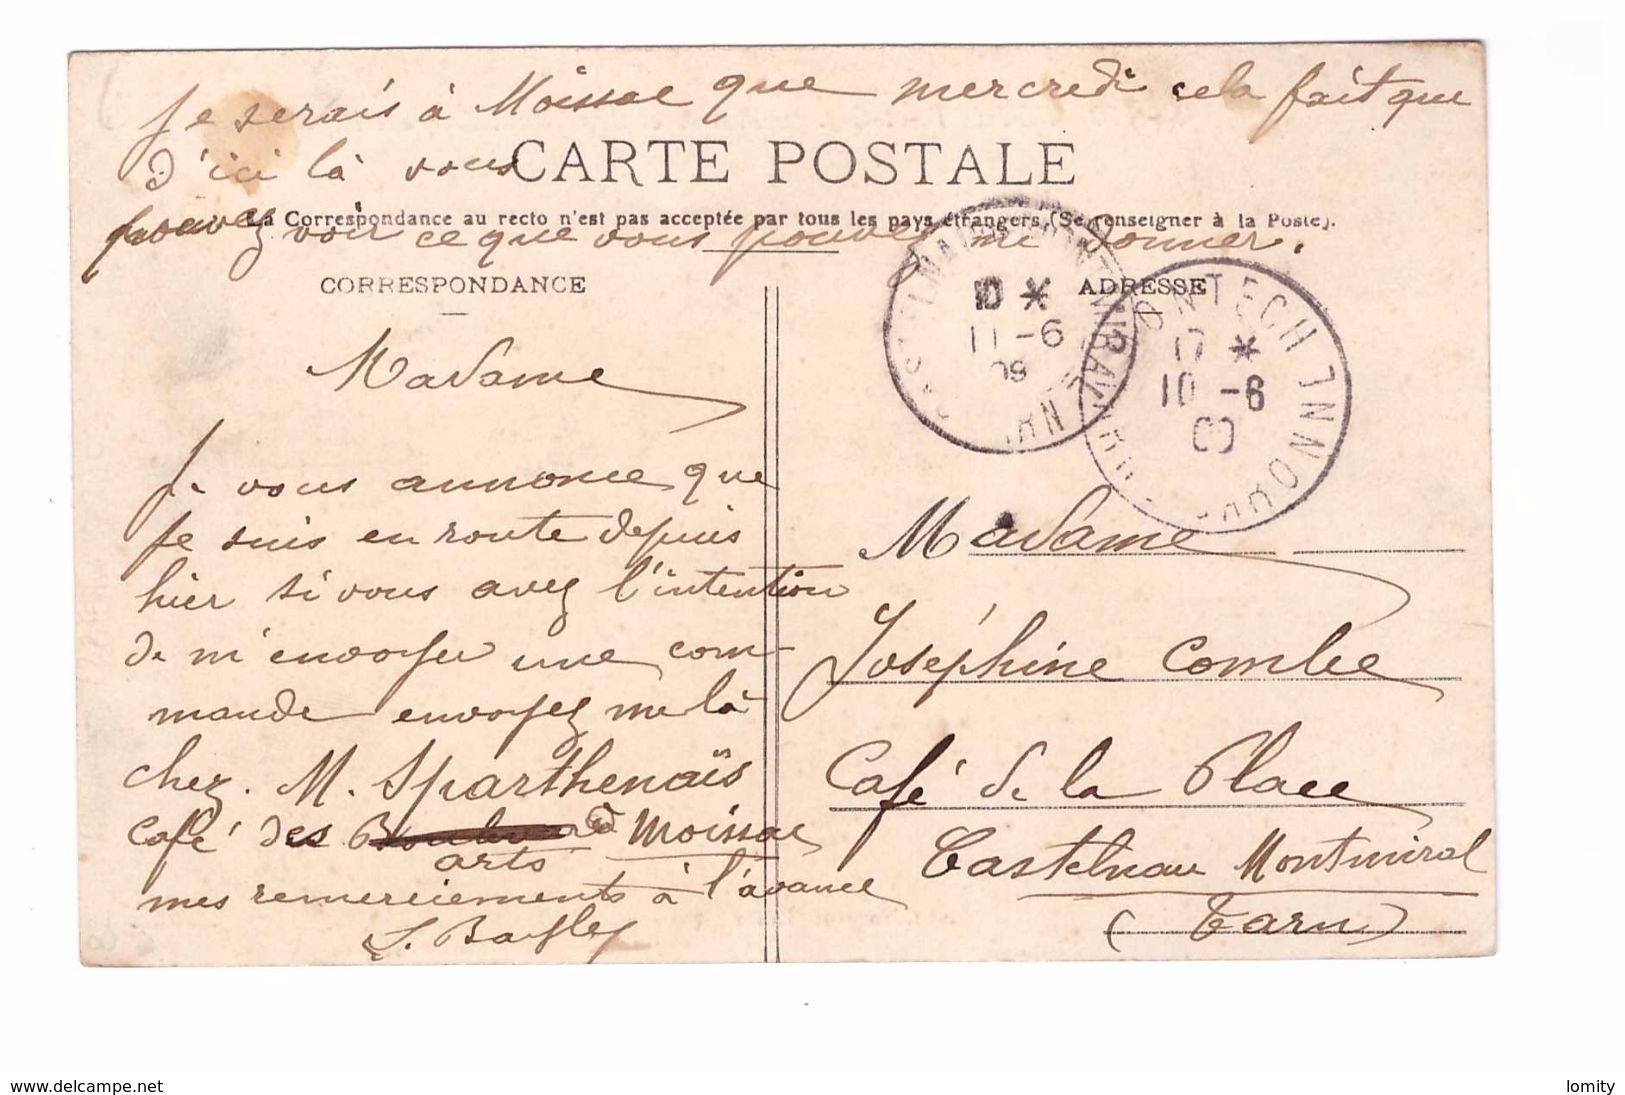 Je serais à Moissac que mercredi cela fait que
d'ici là vous
CARTE POSTALE
La Correspondance au recto n'est pas acceptée par tous les pays étrangers (Se renseigner à la Poste).
pouvez voir ce que vous pouvez me donner.
CORRESPONDANCE
ADRESSE
10 *
11-6
09
17 *
10-6
09
Madame
Je vous annonce que
je suis en route depuis
hier si vous avez l'intention
de m'envoyer une com-
mande envoyez me là
chez. M. Sparthenaïs
café des arts à Moissac
mes remerciements à l'avance
Madame
Joséphine Combe
Café de la Place
Castelnau Montmiral
(Tarn)
www.delcampe.net
lomity